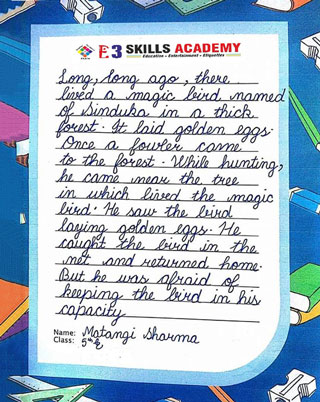 E3 SKILLS ACADEMY
Education • Entertainment • Etiquettes
Long, long ago, there
lived a magic bird named
of Sinduka in a thick
forest. It laid golden eggs.
Once a fowler came
to the forest. While hunting,
he came near the tree
in which lived the magic
bird. He saw the bird
laying golden eggs. He
caught the bird in the
net and returned home.
But he was afraid of
keeping the bird in his
capacity
Name: Matangi Sharma
Class: 5th E